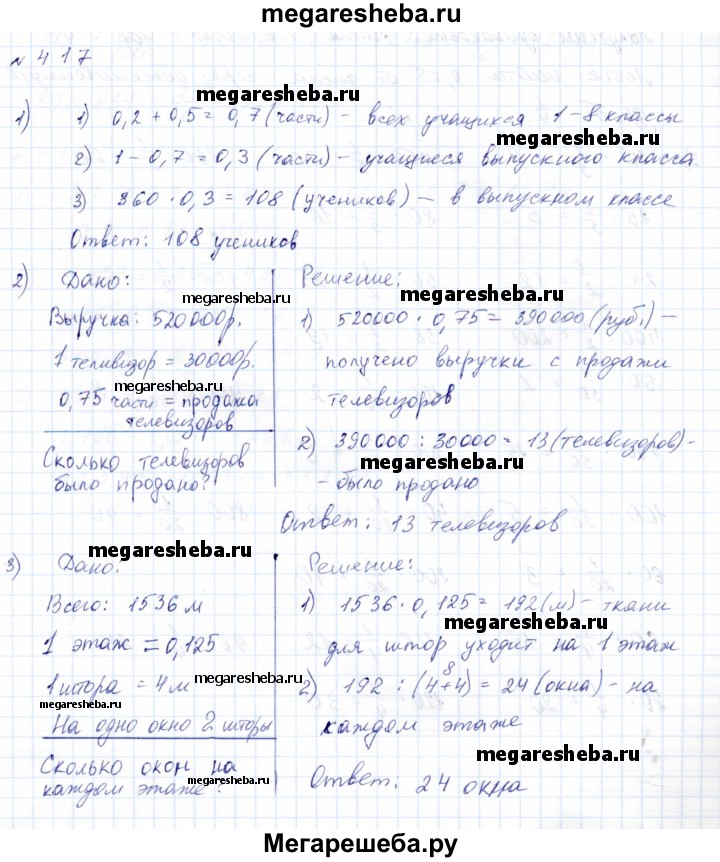 megaresheba.ru
№ 417
megaresheba.ru
1) 1) 0,2 + 0,5 = 0,7 (части) - всех учащихся 1-8 классы
megaresheba.ru
2) 1 - 0,7 = 0,3 (части) - учащиеся выпускного класса
3) 360 · 0,3 = 108 (учеников) - в выпускном классе
Ответ: 108 учеников
2) Дано:
megaresheba.ru
Выручка: 520000р.
1 телевизор = 30000р.
megaresheba.ru
0,75 части = продажа
телевизоров
Сколько телевизоров
было продано?
Решение:
megaresheba.ru
1) 520000 · 0,75 = 390000 (руб.) -
получено выручки с продажи
телевизоров
2) 390000 : 30000 = 13 (телевизоров) -
megaresheba.ru
- было продано
Ответ: 13 телевизоров
megaresheba.ru
3) Дано:
Всего: 1536 м
1 этаж = 0,125
1 штора = 4 м
megaresheba.ru
megaresheba.ru
На одно окно 2 шторы
Сколько окон на
каждом этаже?
megaresheba.ru
Решение:
1) 1536 · 0,125 = 192 (м) - ткани
megaresheba.ru
для штор уходит на 1 этаж
8
2) 192 : (4+4) = 24 (окна) - на
каждом этаже
megaresheba.ru
Ответ: 24 окна
Мегарешеба.ру